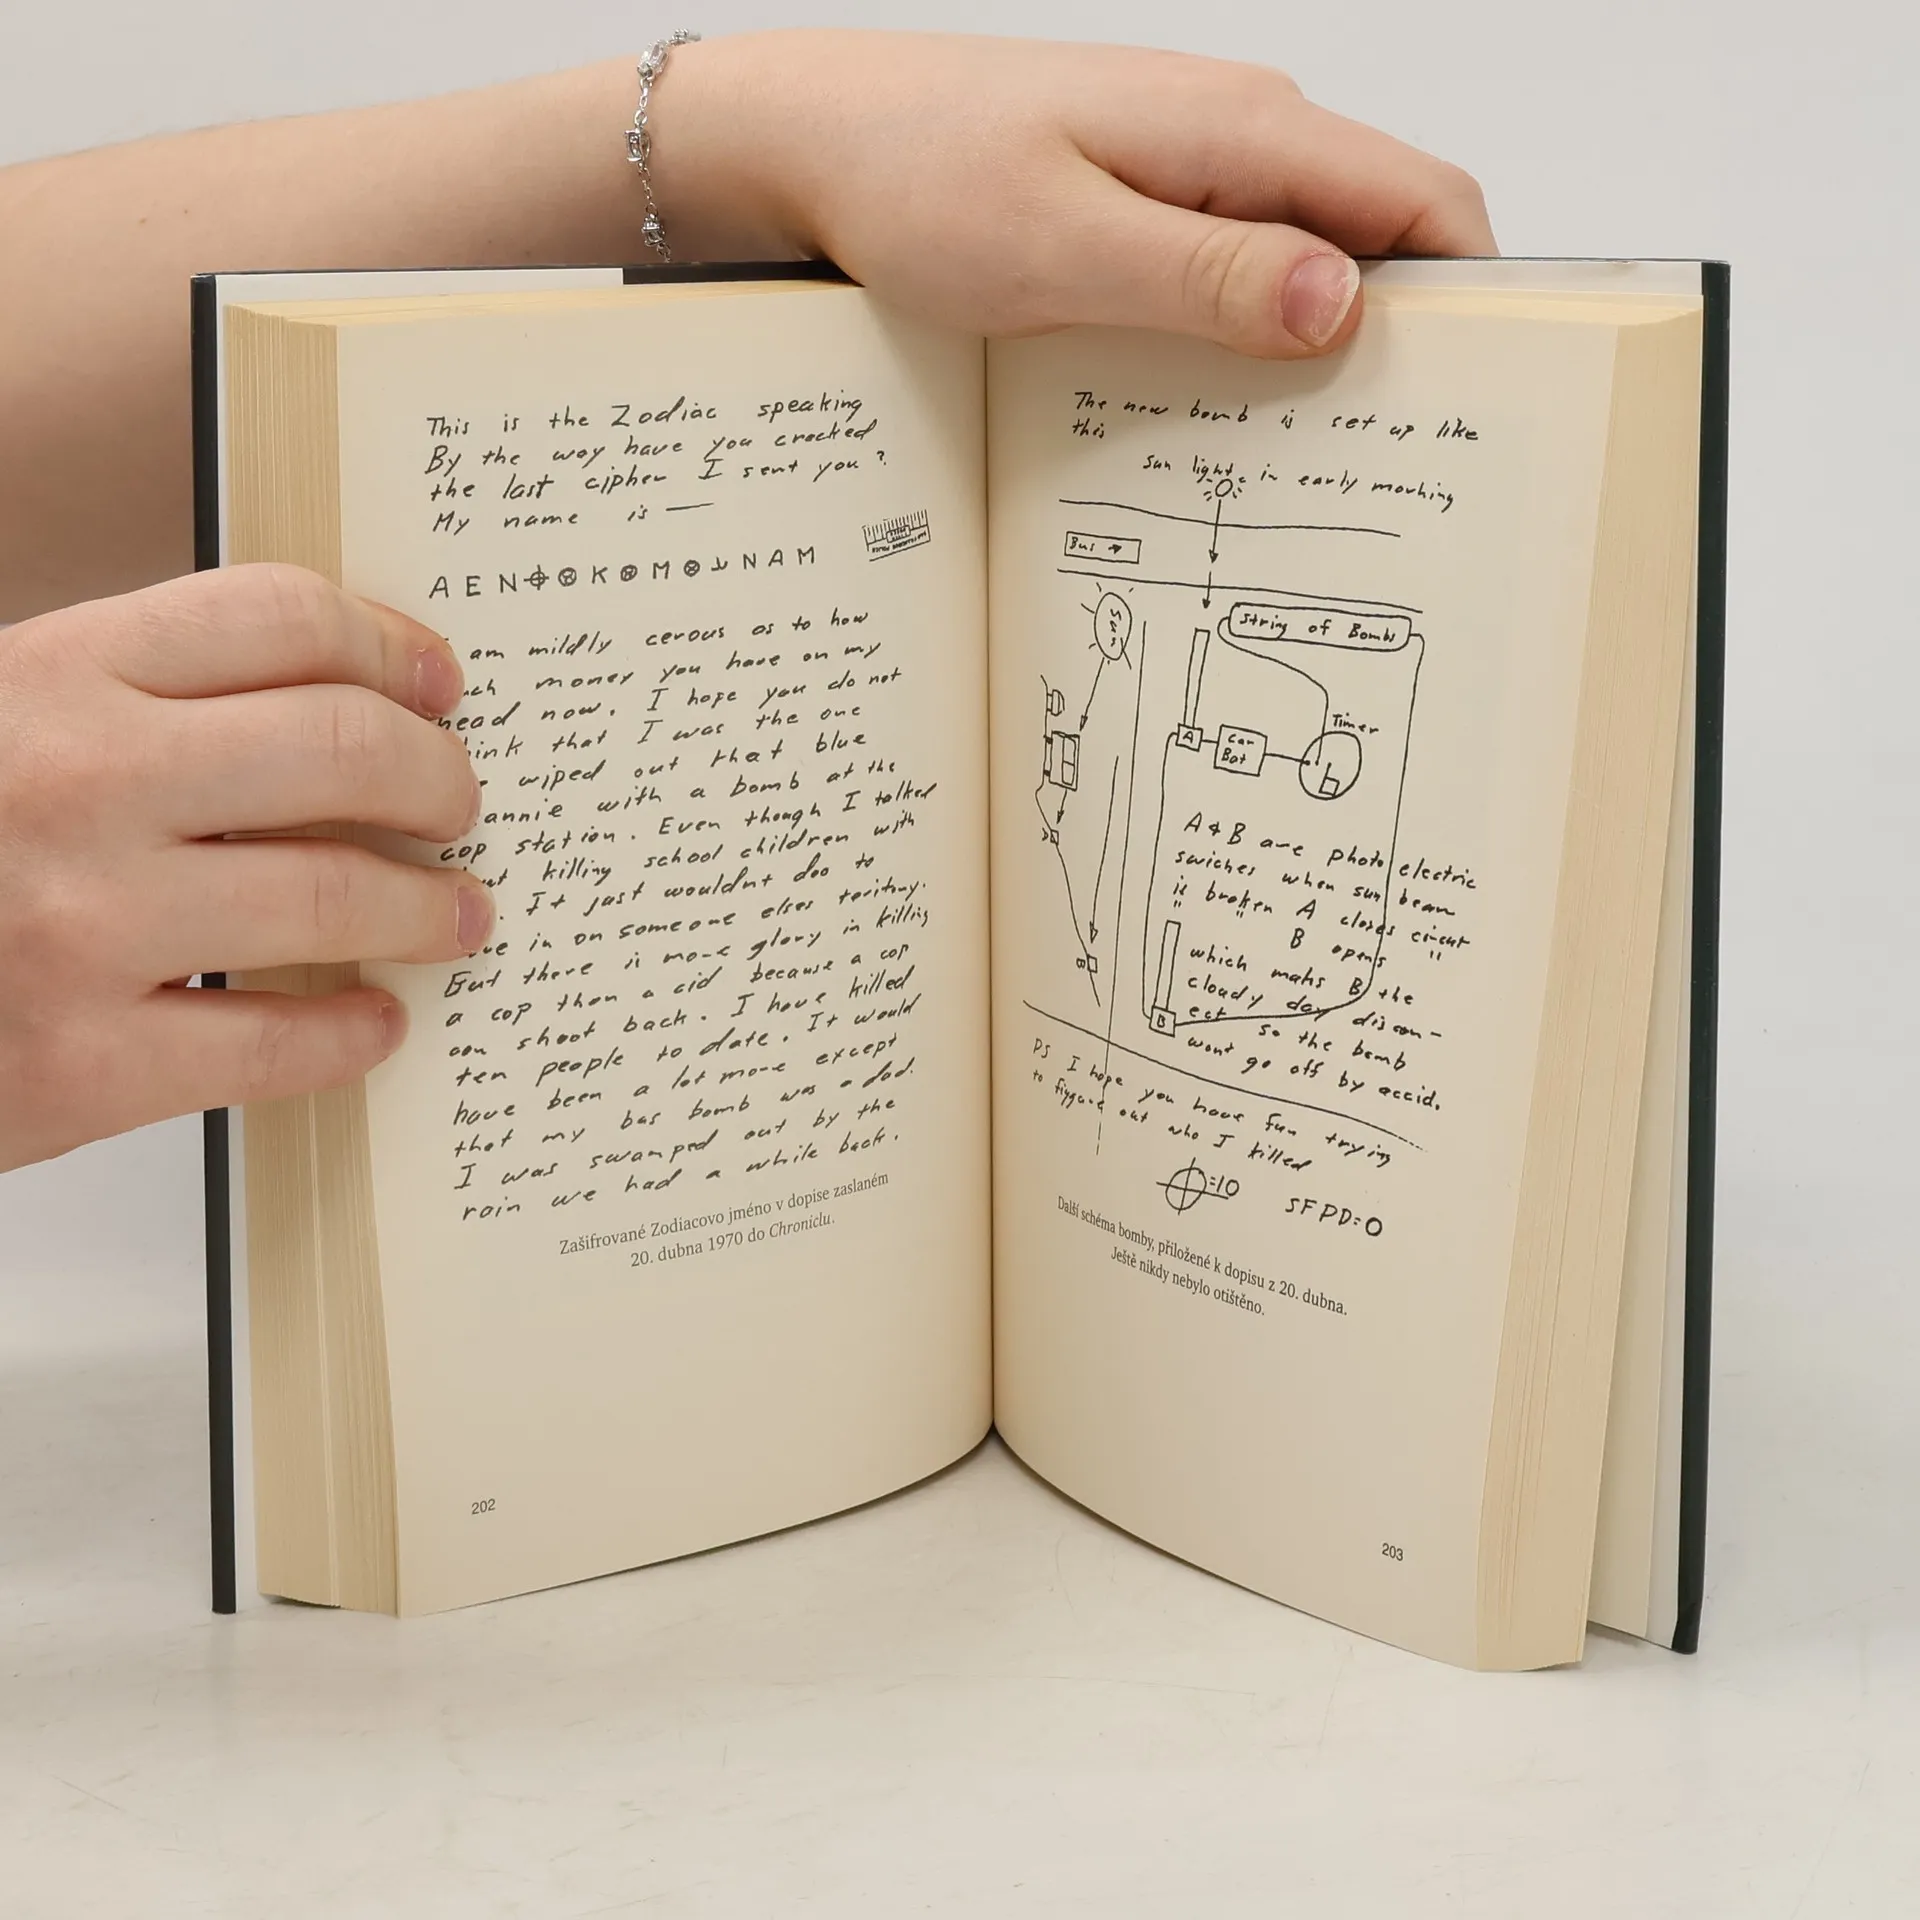 This is the Zodiac speaking
By the way have you cracked
the last cipher I sent you?
My name is —
A E N ⌖ ⊗ K ⊗ M ⊗ ⅃ N A M
am mildly cerous as to how
money you have on my
head now. I hope you do not
think that I was the one
wiped out that blue
meannie with a bomb at the
cop station. Even though I talked
killing school children with
. It just wouldnt doo to
in on someone elses teritory.
But there is more glory in killing
a cop than a cid because a cop
can shoot back. I have killed
ten people to date. It would
have been a lot more except
that my bas bomb was a dad.
I was swamped out by the
rain we had a while back.
Zašifrované Zodiacovo jméno v dopise zaslaném
20. dubna 1970 do Chroniclu.
202
The new bomb is set up like
this
sun light in early morning
Bus
Sun
String of Bombs
Timer
A
Car
Bat
A
B
A & B are photo electric
swiches when sun beam
is broken A closes circut
" " B opens "
which maks B the
cloudy day discon-
ect so the bomb
wont go off by accid.
B
PS I hope you have fun trying
to figgure out who I killed
⌖=10 SFPD=0
Další schéma bomby, přiložené k dopisu z 20. dubna.
Ještě nikdy nebylo otištěno.
203